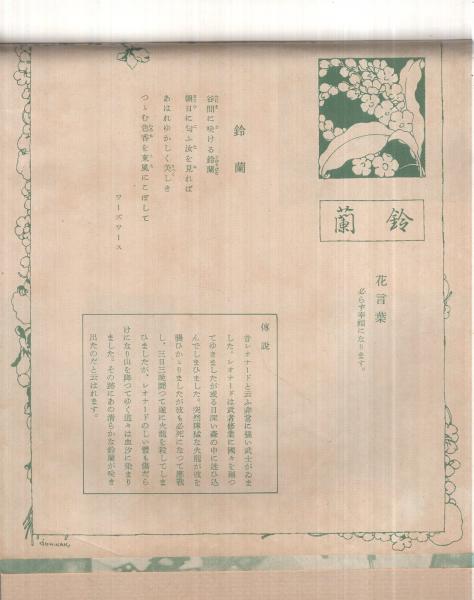 鈴蘭
花言葉
必らず幸福になります。
鈴蘭
谷間に咲ける鈴蘭
朝日に匂ふ汝を見れば
あはれゆかしく美しき
つゝむ色香を東風にこぼして
ワーズワース
傳説
昔レオナードと云ふ非常に強い武士がゐま
した。レオナードは武者修業に國々を廻つ
てゆきましたが或る日深い森の中に迷ひ込
んでしまひました。突然獰猛な火龍が彼を
襲ひかゝりましたが彼も必死になつて應戰
し、三日三晩闘つて遂に火龍を殺してしま
ひましたが、レオナードの
い體も傷だら
けになり山を降つてゆく道々は血汐に染まり
ました。その跡にあの清らかな鈴蘭が咲き
出たのだと云はれます。